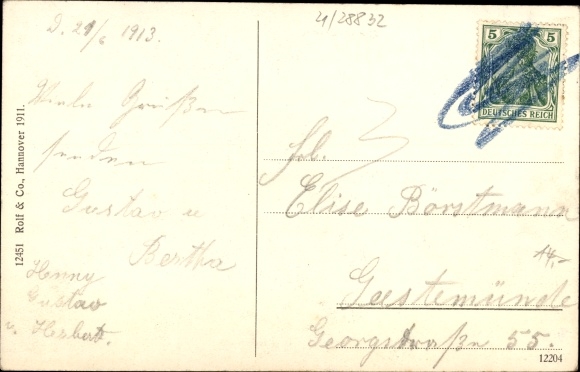 4/28832
D. 21/6 1913.
5 5
DEUTSCHES REICH
Viele Grüße
senden
Gustav u
Bertha
Henny
Gustav
u. Herbert.
12451 Rolf & Co., Hannover 1911.
Frl.
Elise Börstmann
14,-
Geestemünde
Georgstraße 55.
12204